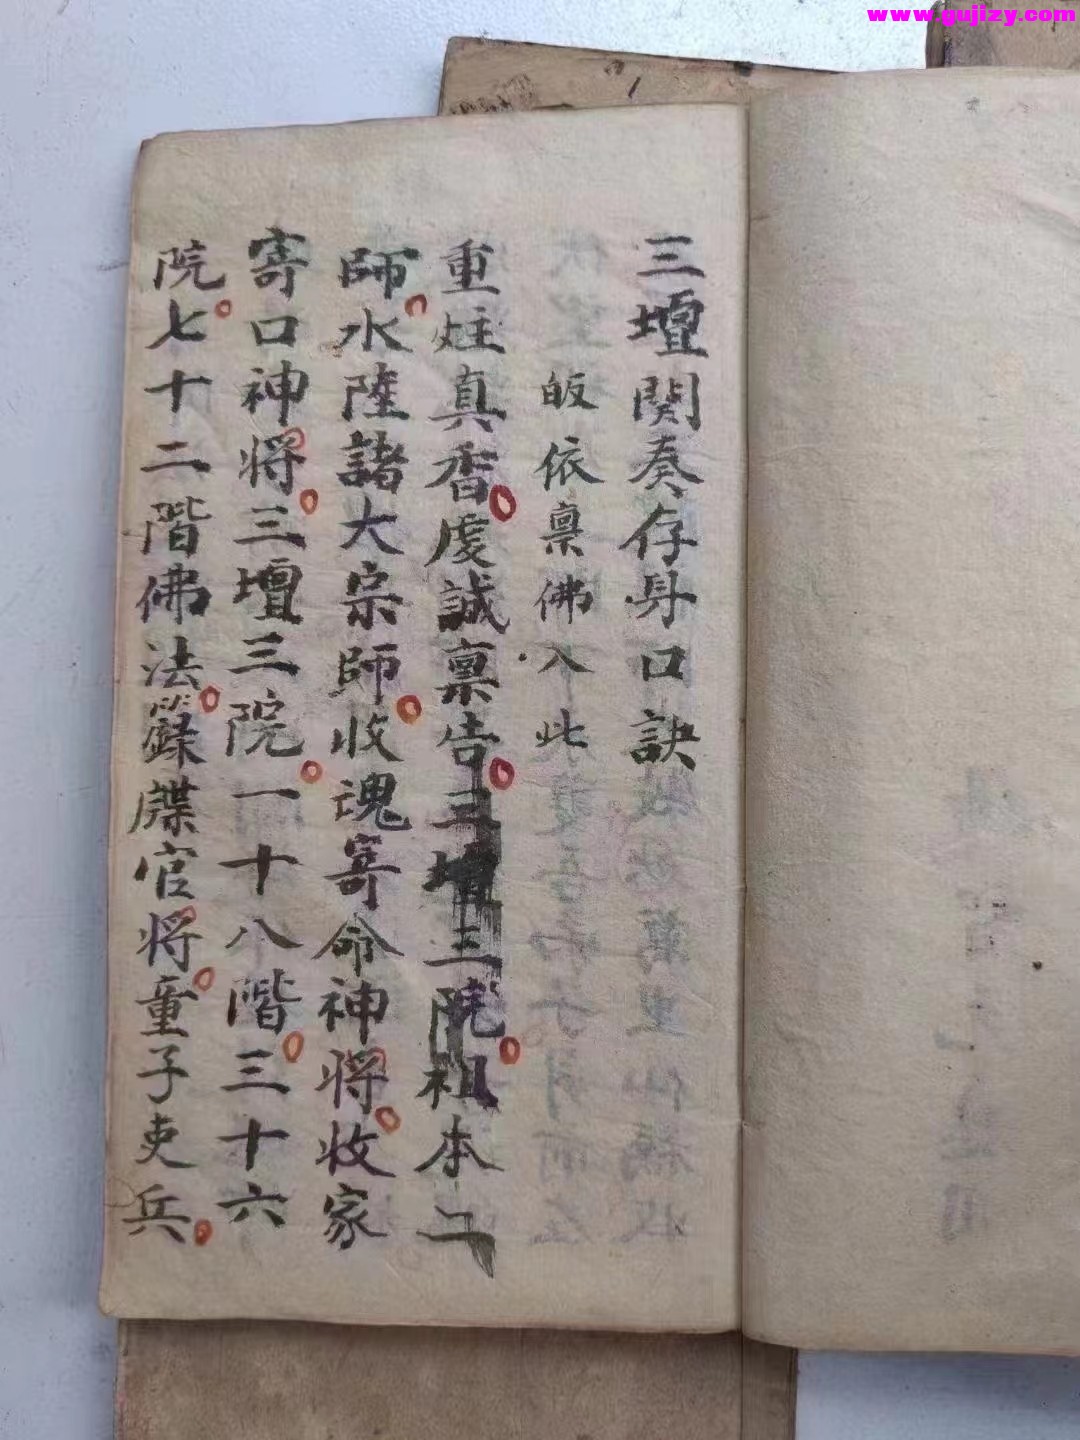 www.gujizy.com
三壇関奏存身口訣
皈依稟佛入此
重炷真香虔誠稟告三壇三院祖本二
師水陸諸大宗師收魂寄命神将收家
寄口神将三壇三院一十八階三十六
院七十二階佛法籙牒官将童子吏兵